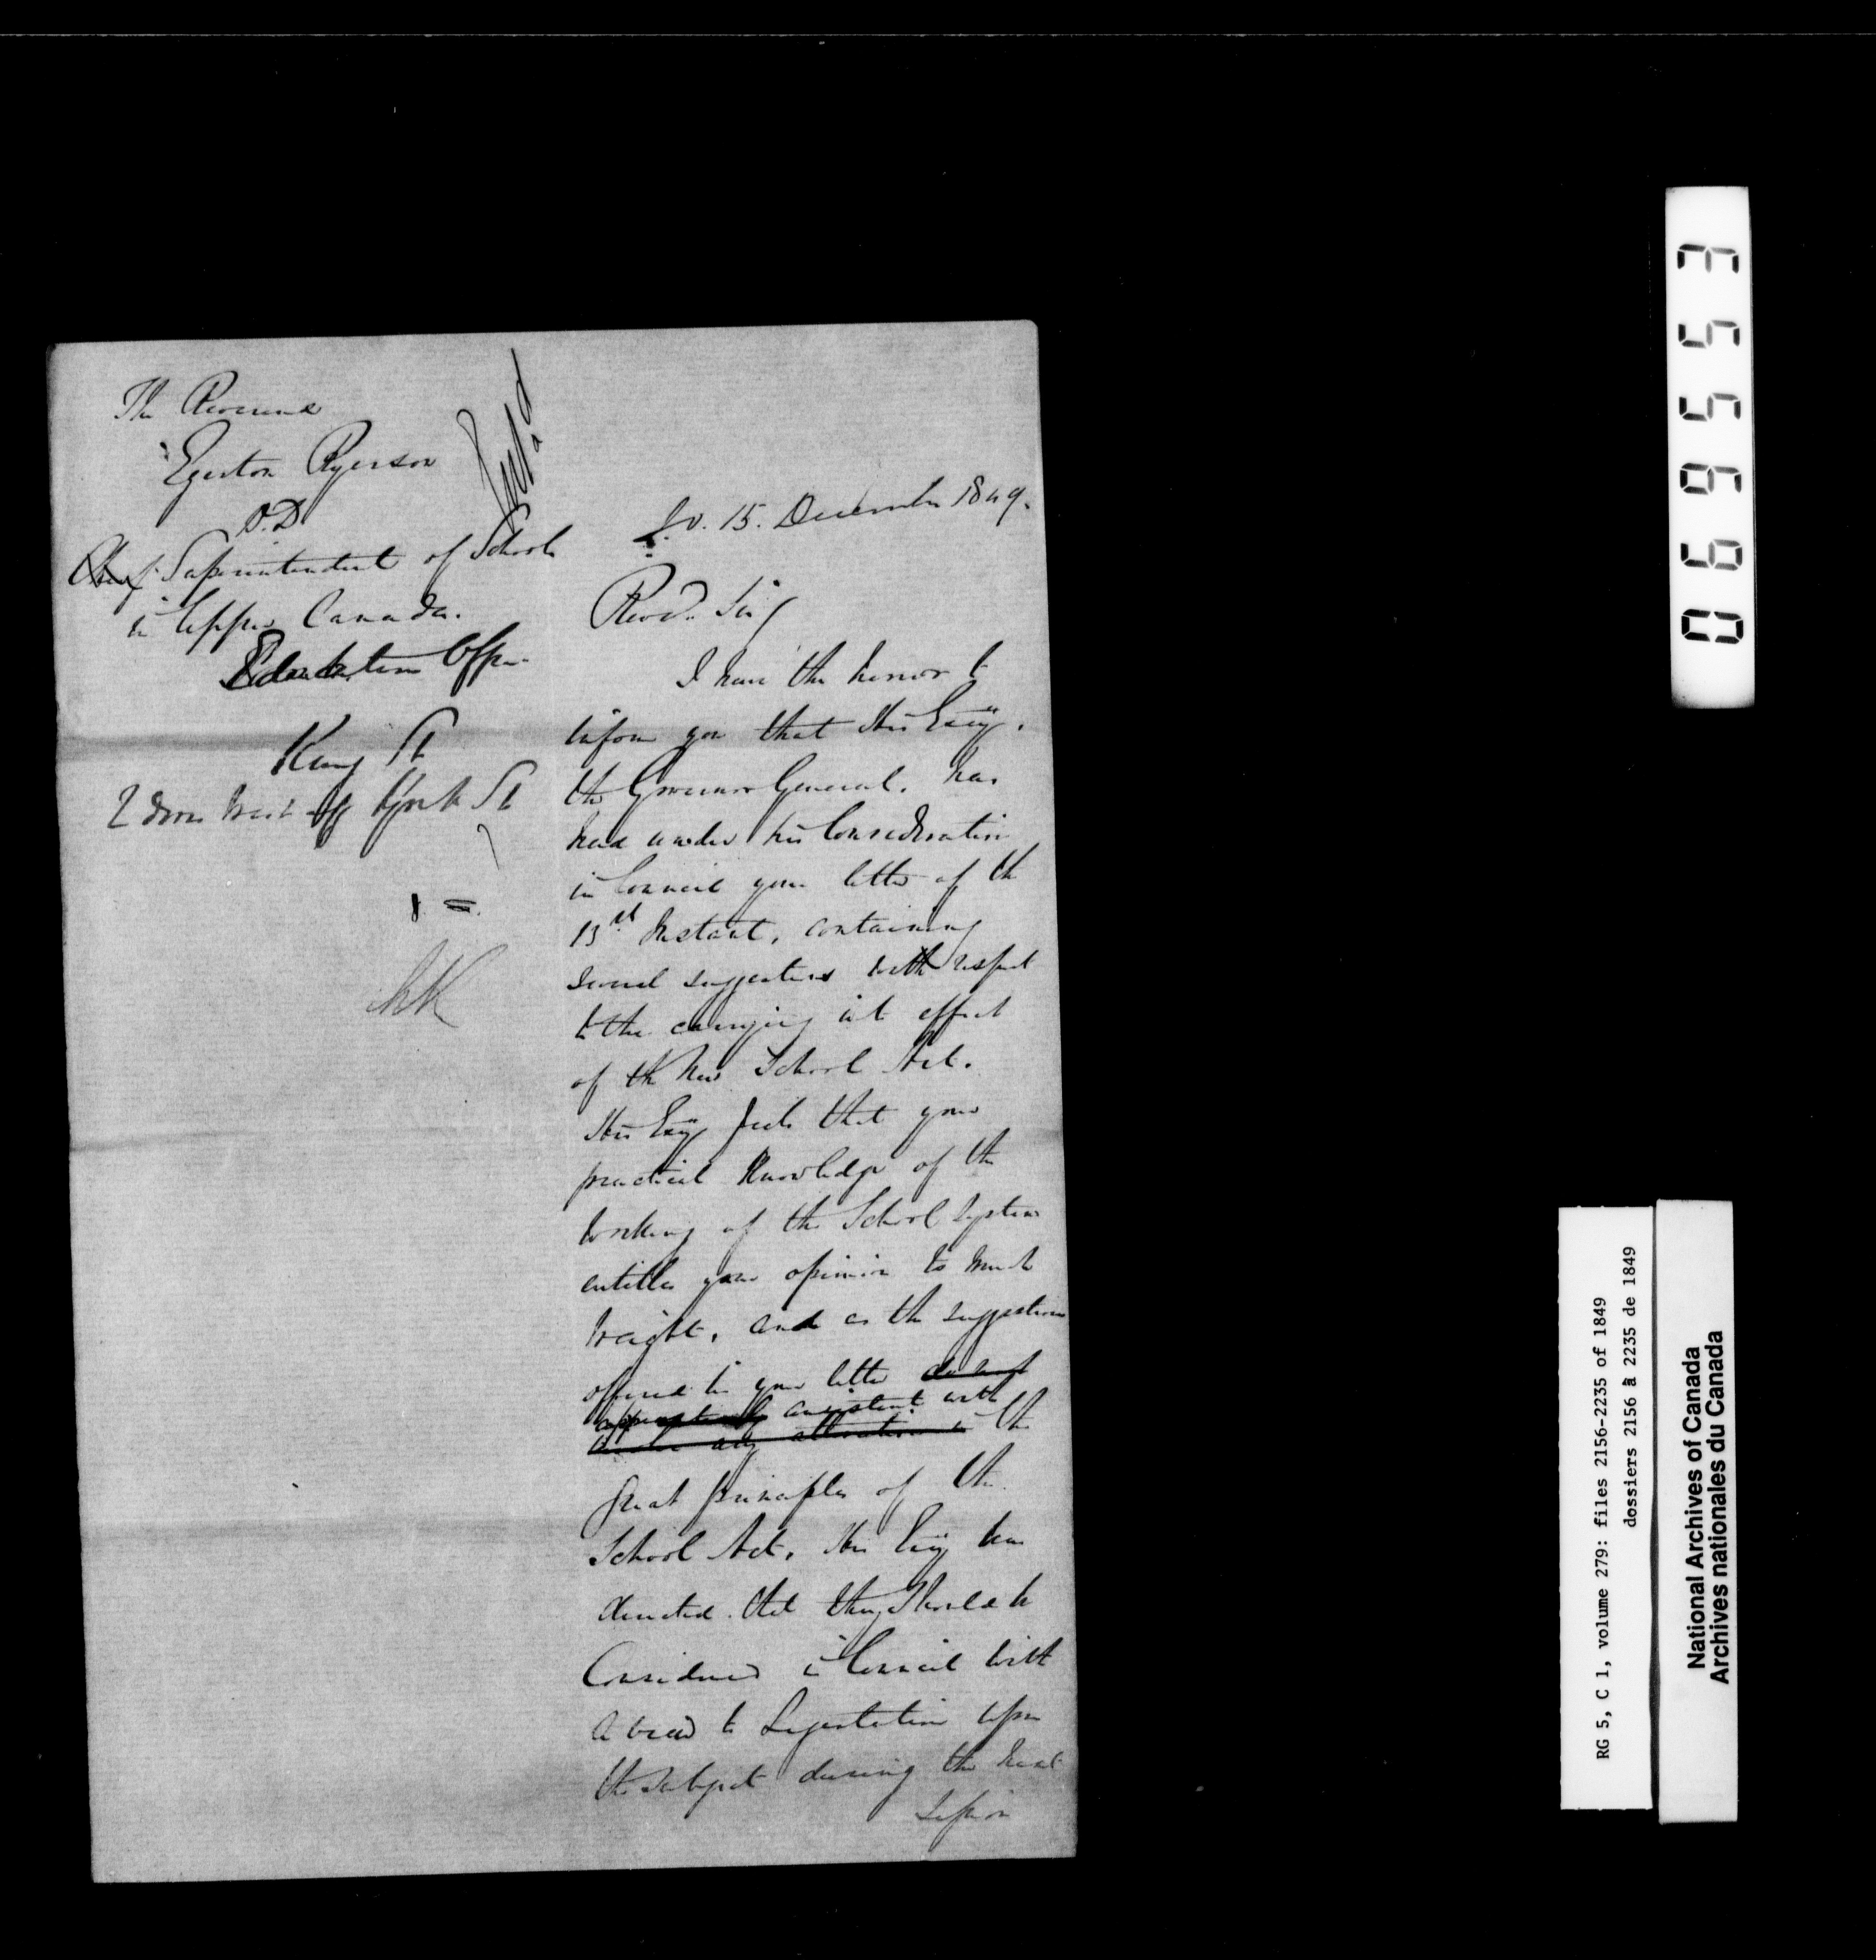 The Reverend
Egerton Ryerson
D.D.
Chief Superintendent of Schools
in Upper Canada.
Education Office
King St
2 doors West of York St
15. December 1849.
Revd. Sir,
I have the honor to
inform you that His Excy.
the Governor General, has
had under his Consideration
in Council your letter of the
13th Instant, containing
several suggestions with respect
to the carrying into effect
of the New School Act.
His Excy feels that your
practical Knowledge of the
working of the School System
entitles your opinion to much
weight, and as the suggestions
offered in your letter do not
consistent with
involve any alteration in the
great principles of the
School Act, His Excy has
directed that they should be
Considered in Council with
a view to Legislation upon
the subject during the next
Session
MK
069553
RG 5, C 1, volume 279: files 2156-2235 of 1849
dossiers 2156 à 2235 de 1849
National Archives of Canada
Archives nationales du Canada